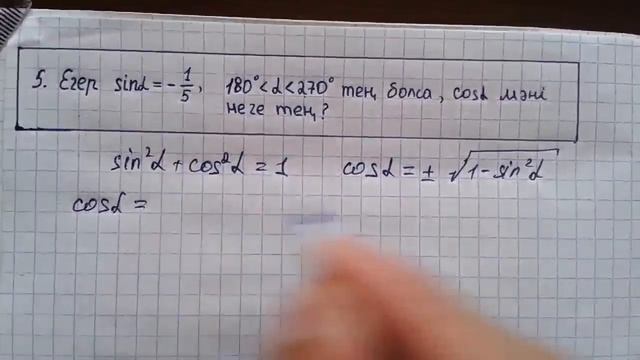 5. Егер sinα = -1/5, 180° < α < 270° тең болса, cosα мәні
неге тең?
sin²α + cos²α = 1 cosα = ± √(1-sin²α)
cosα =